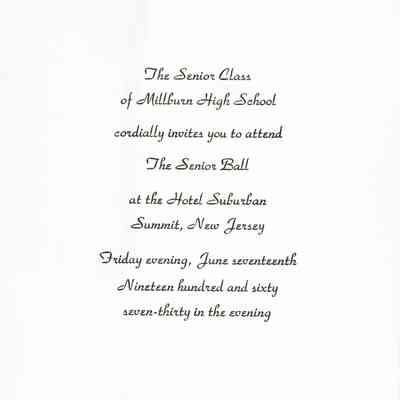 The Senior Class
of Millburn High School
cordially invites you to attend
The Senior Ball
at the Hotel Suburban
Summit, New Jersey
Friday evening, June seventeenth
Nineteen hundred and sixty
seven-thirty in the evening